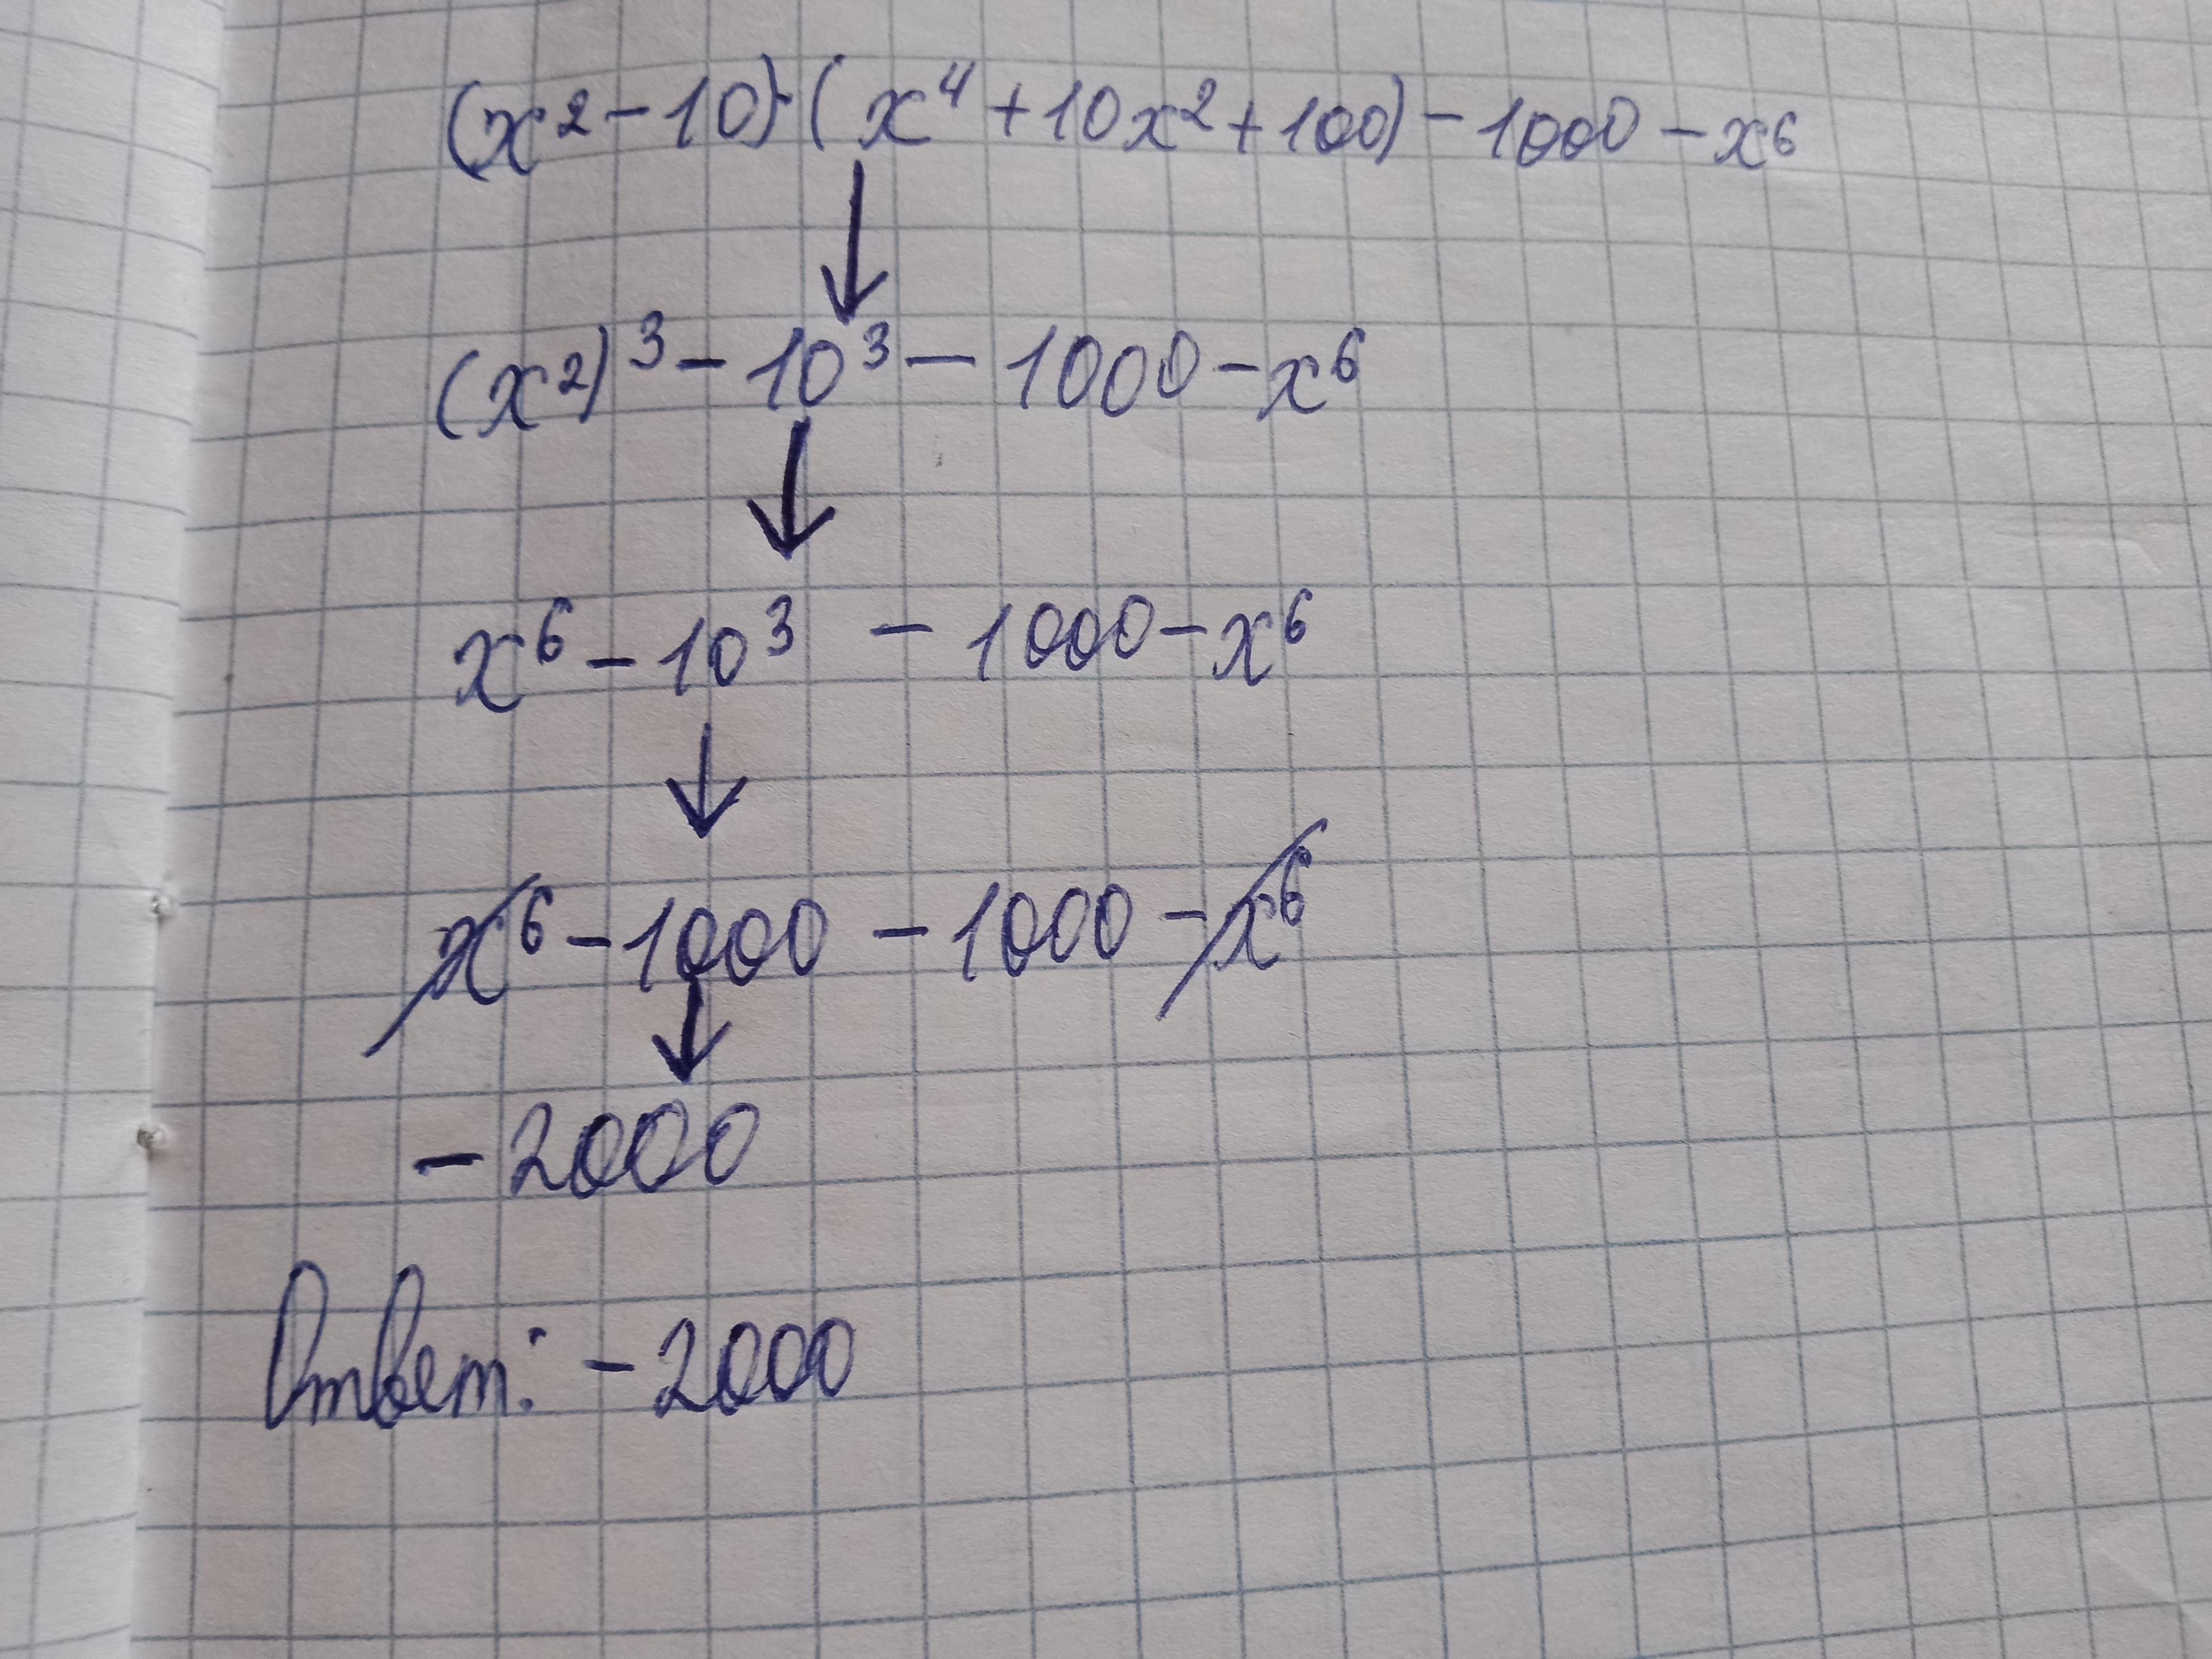 (x² - 10)·(x⁴ + 10x² + 100) - 1000 - x⁶
(x²)³ - 10³ - 1000 - x⁶
x⁶ - 10³ - 1000 - x⁶
x⁶ - 1000 - 1000 - x⁶
- 2000
Ответ: - 2000